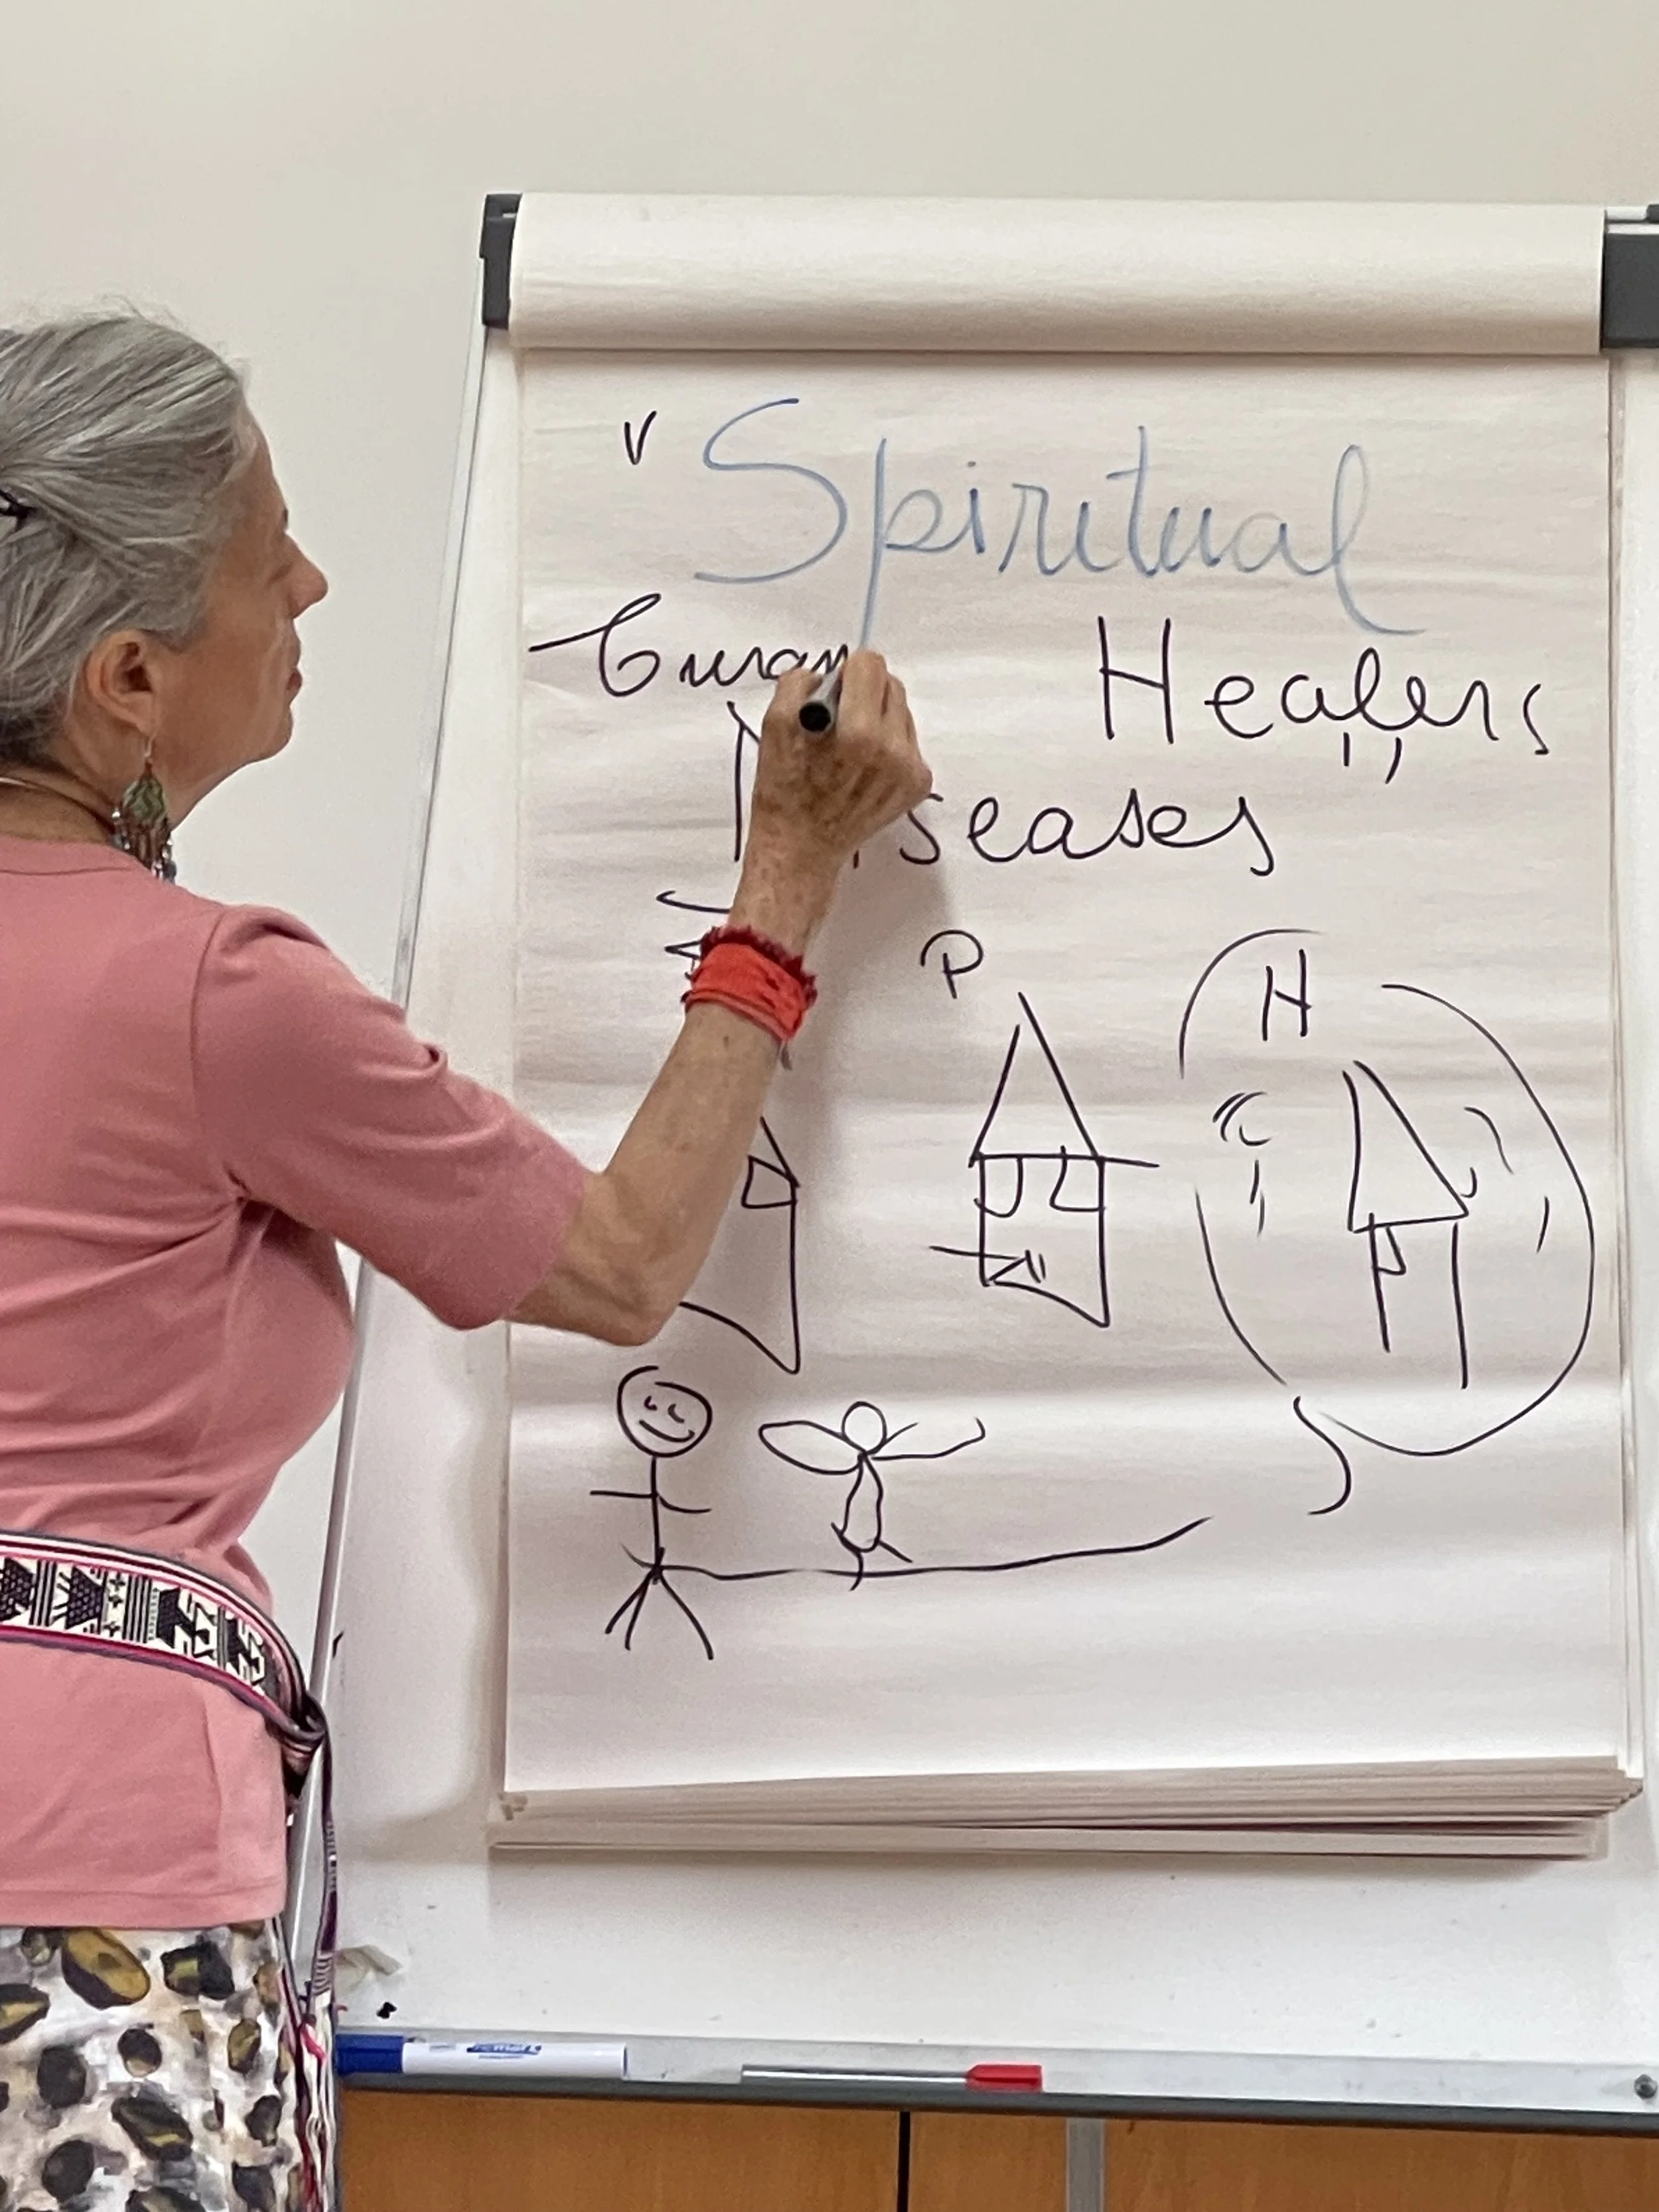 V Spiritual
Curan Healers
Diseases
P H